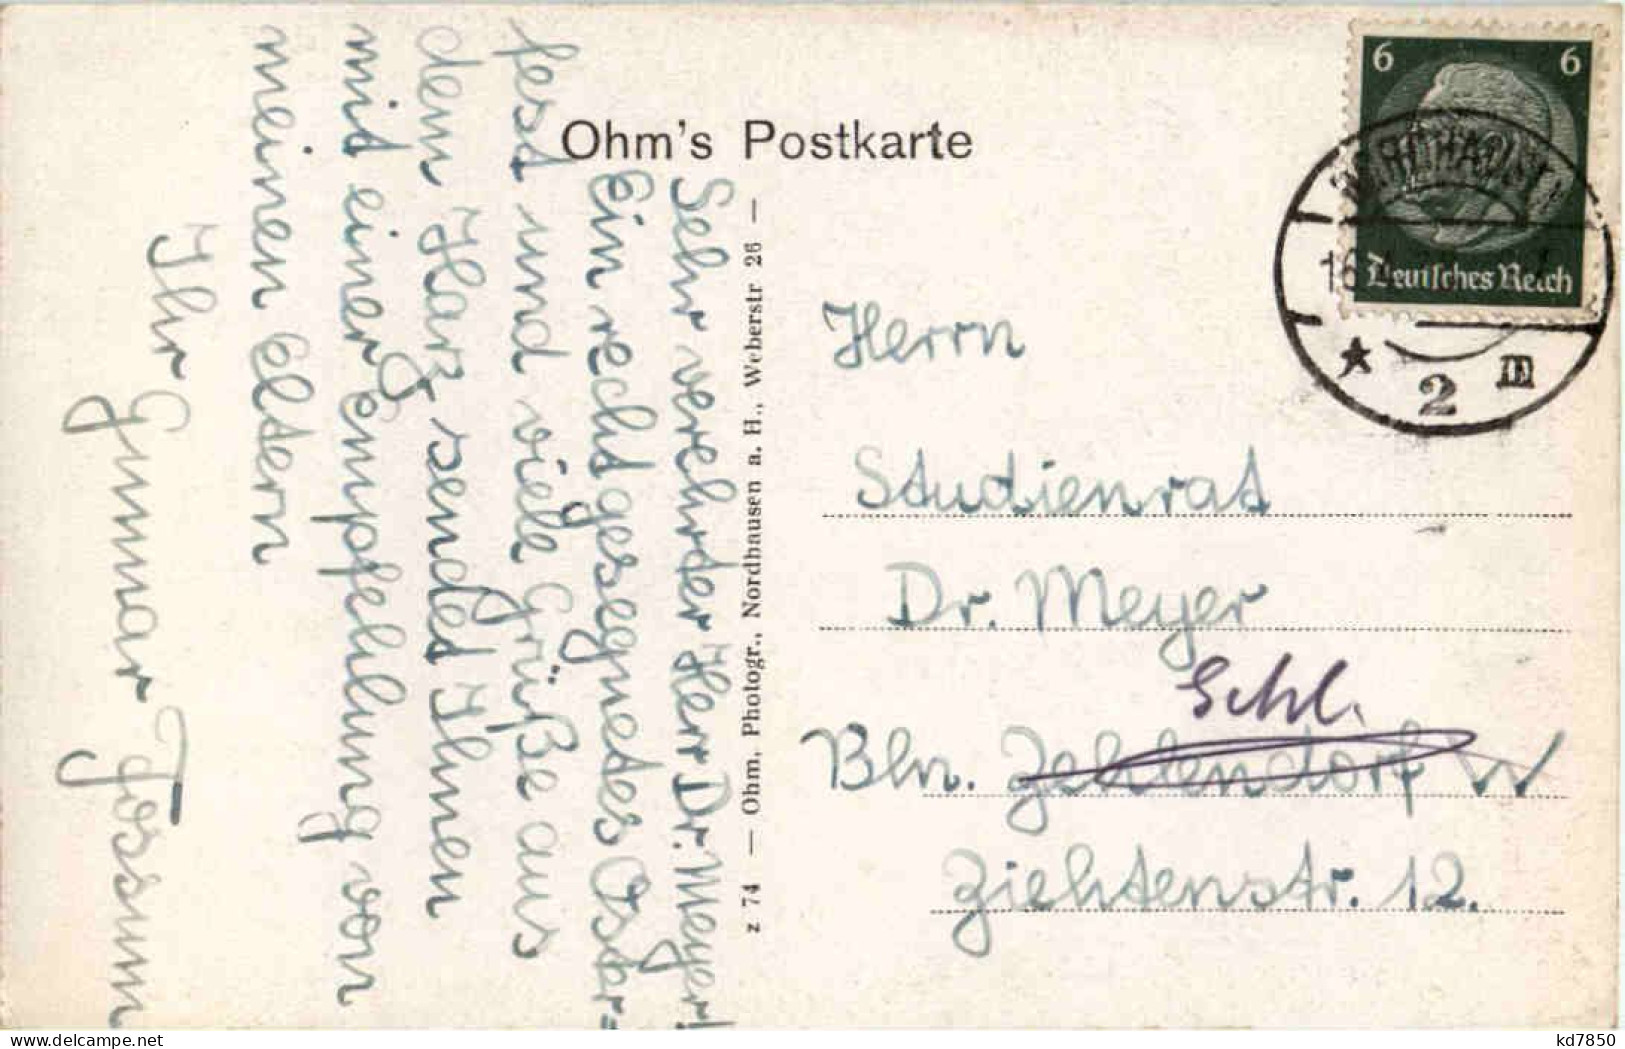 Ohm's Postkarte
Sehr verehrter Herr Dr. Meyer!
Ein recht gesegnetes Oster=
fest und viele Grüße aus
dem Harz sendet Ihnen
mit einer Empfehlung von
meinen Eltern
Ihr Gunnar Fossum
z 74 — Ohm, Photogr., Nordhausen a. H., Weberstr 26 —
6 6
Deutsches Reich
16
2 m
Herrn
Studienrat
Dr. Meyer
Schl.
Bln. Zehlendorf W
Ziehtenstr. 12.
kd7850